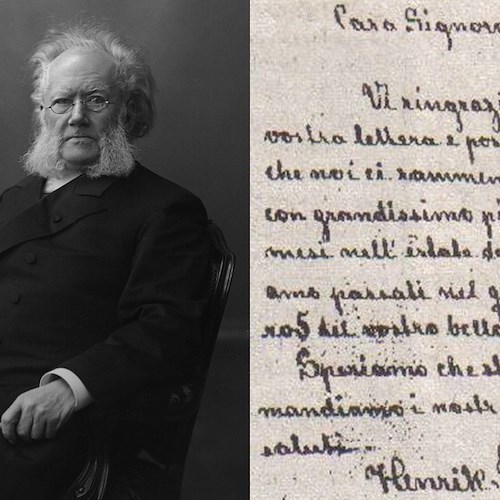 Cara Signor
Vi ringrazi
vostra lettera e pos
che noi ci rammen
con grandissimo p
mesi nell' estate d
amo passati nel g
del vostro bello
Speriamo che s
mandiamo i nostr
saluti.
Henrik